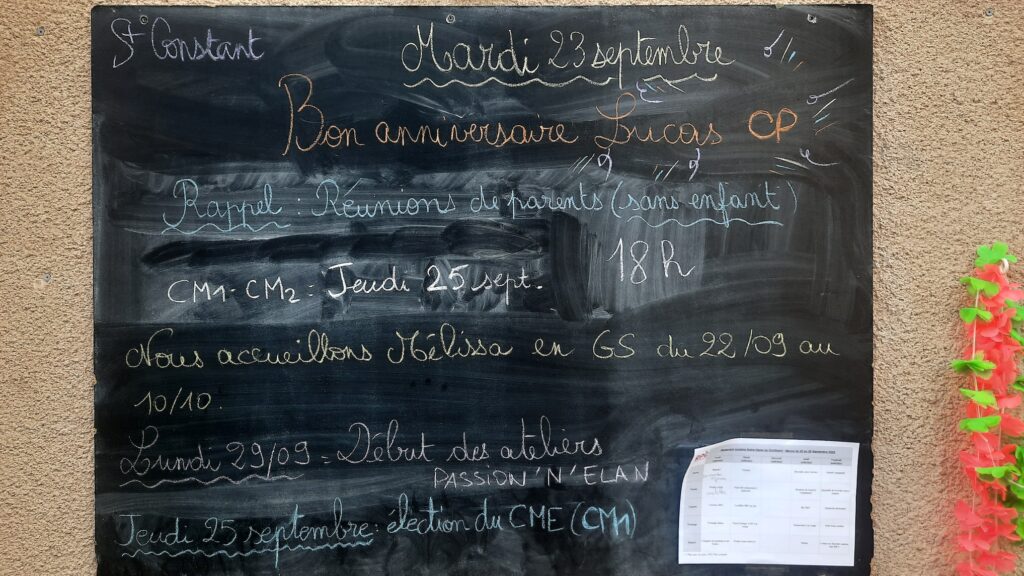 St Constant
Mardi 23 septembre
Bon anniversaire Lucas CP
Rappel : Réunions de parents (sans enfant)
18h
CM1-CM2 = Jeudi 25 sept.
Nous accueillons Mélissa en GS du 22/09 au
10/10.
Lundi 29/09 = Début des ateliers
PASSION'N'ELAN
Jeudi 25 septembre : élection du CME (CM1)